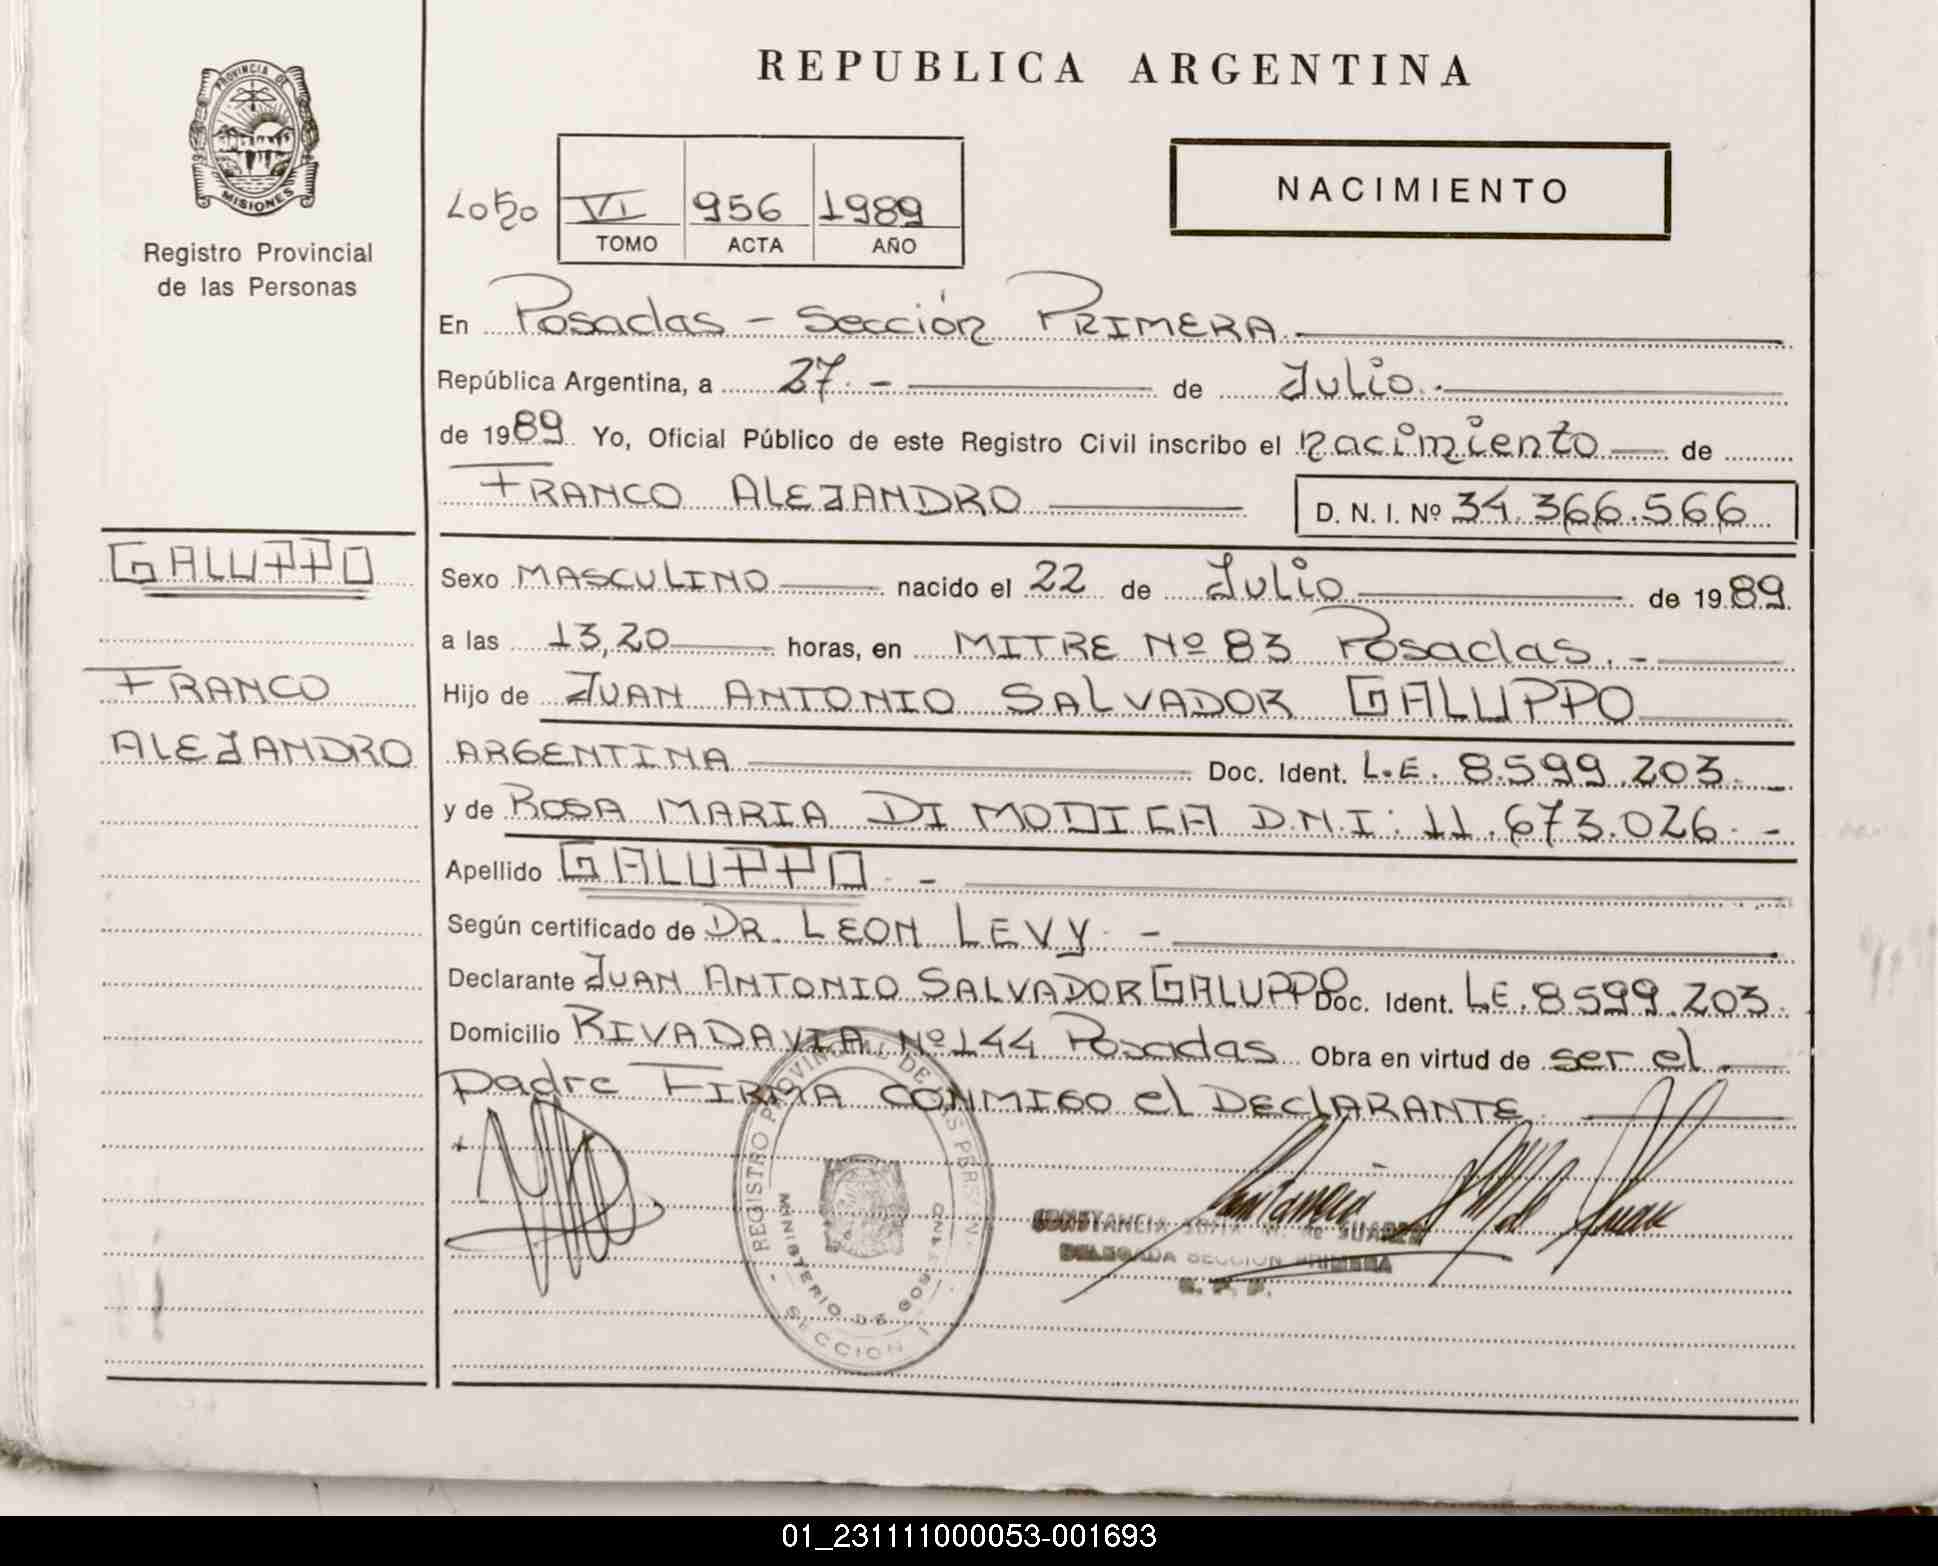 REPUBLICA ARGENTINA
PROVINCIA DE
MISIONES
Registro Provincial
de las Personas
NACIMIENTO
VI 956 1989
TOMO ACTA AÑO
En Posadas - Sección PRIMERA
República Argentina, a 27.- de Julio.
de 1989 Yo, Oficial Público de este Registro Civil inscribo el nacimiento de
FRANCO ALEJANDRO D. N. I. Nº 34.366.566
GALUPPO
FRANCO
ALEJANDRO
Sexo MASCULINO nacido el 22 de Julio de 1989.
a las 13,20 horas, en MITRE Nº 83 Posadas.-
Hijo de JUAN ANTONIO SALVADOR GALUPPO
ARGENTINA Doc. Ident. L.E. 8.599.203.-
y de ROSA MARIA DI MODICA D.N.I: 11.673.026.-
Apellido GALUPPO.-
Según certificado de DR. LEON LEVY.-
Declarante JUAN ANTONIO SALVADOR GALUPPO Doc. Ident. L.E. 8599.203.
Domicilio RIVADAVIA Nº 144 Posadas Obra en virtud de ser el
padre FIRMA CONMIGO el DECLARANTE
REGISTRO PROVINCIAL DE LAS PERSONAS
MINISTERIO DE GOBIERNO
SECCION 1
CONSTANCIA de SUAREZ
DELEGADA SECCION PRIMERA
01_231111000053-001693